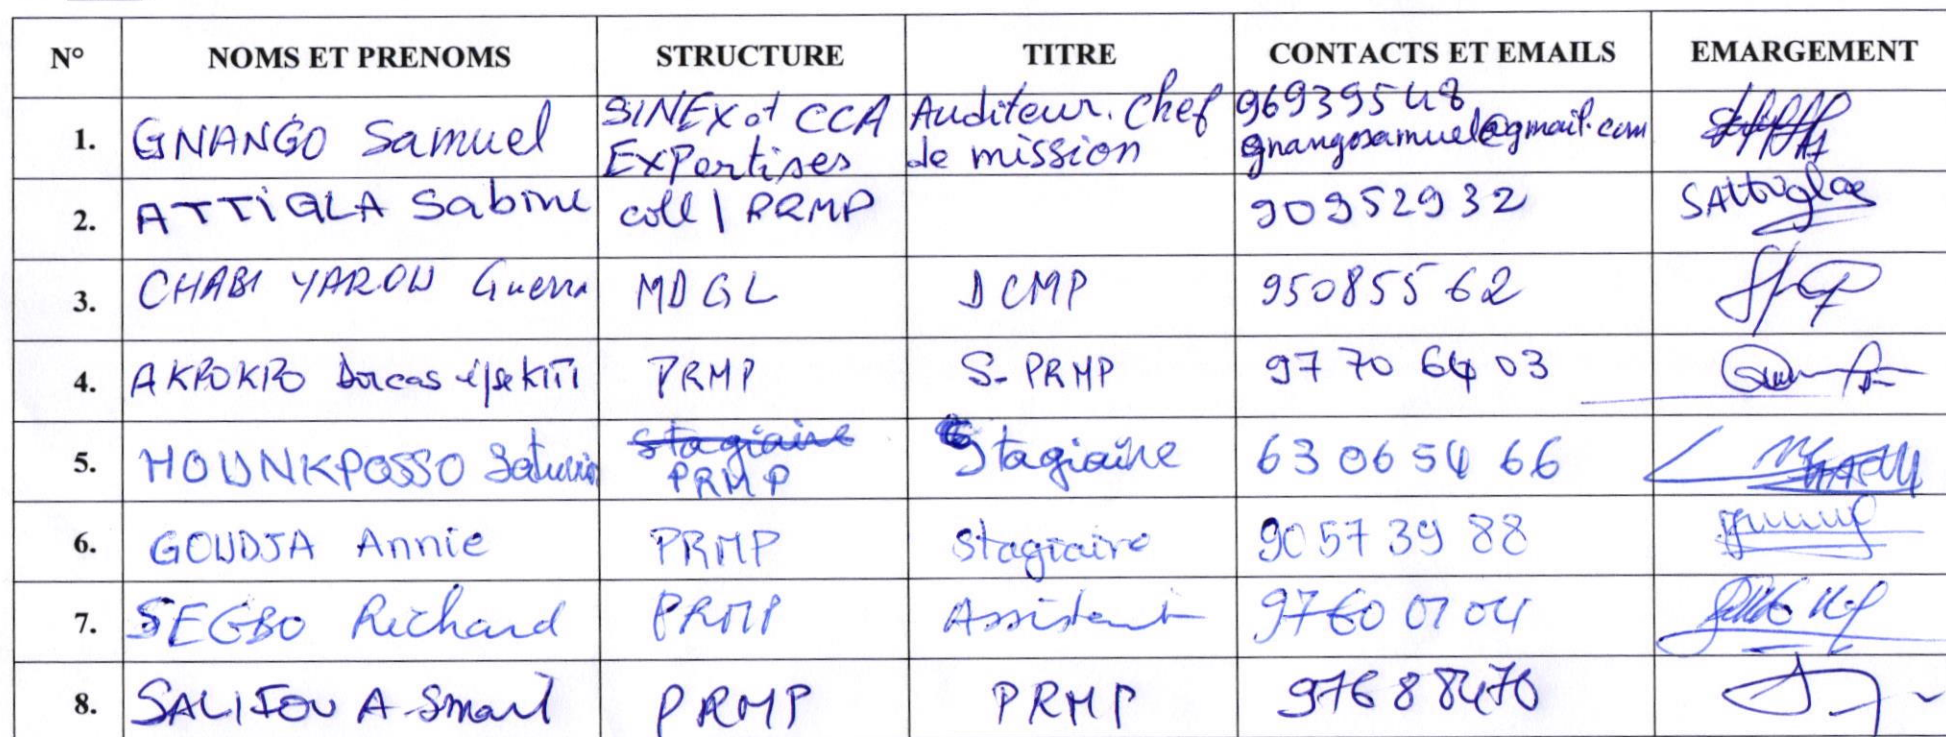 N° NOMS ET PRENOMS STRUCTURE TITRE CONTACTS ET EMAILS EMARGEMENT
1. GNANGO Samuel SINEX et CCA EXPertises Auditeur. Chef de mission 96939548 gnangosamuel@gmail.com
2. ATTIGLA Sabine coll / PRMP 90952932
3. CHABI YAROU Guerra MDGL DCMP 95085562
4. AKPOKPO Dorcas PRMP S-PRMP 97 70 64 03
5. HOUNKPOSSO stagiaire PRMP Stagiaire 63 06 54 66
6. GOUDJA Annie PRMP Stagiaire 90 57 39 88
7. SEGBO Richard PRMP Assistant 9760 07 04
8. SALIFOU A. Smaïl PRMP PRMP 97688470